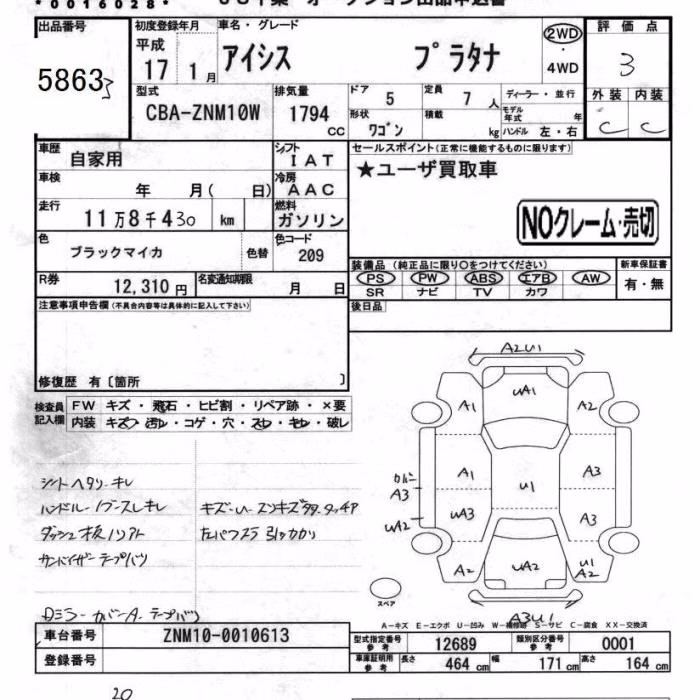 *0016028*
出品番号
5863
初度登録年月
平成
17 1月
車名・グレード
アイシス プラタナ
2WD
・
4WD
評価点
3
外装 内装
C C
型式
CBA-ZNM10W
排気量
1794
CC
ドア 5
定員 7 人
形状 ワゴン
積載 kg
ディーラー・並行
モデル年式 年
ハンドル 左・右
車歴
自家用
シフト
IAT
車検
年 月( 日)
冷房
AAC
走行
11万8千430 km
燃料
ガソリン
色
ブラックマイカ
色替
色コード
209
R券
12,310円
名変通知期限
月 日
セールスポイント(正常に機能するものに限ります)
★ユーザ買取車
NOクレーム・売切
装備品(純正品に限り○をつけてください)
PS PW ABS エアB AW
SR ナビ TV カワ
新車保証書
有・無
後日品
注意事項申告欄(不具合内容等は具体的に記入して下さい)
修復歴 有〔箇所 〕
検査員
記入欄
FW キズ・飛石・ヒビ割・リペア跡・×要
内装 キズ・汚レ・コゲ・穴・スレ・キレ・破レ
シートヘタリ・キレ
ダッシュ板ノリアト
サンバイザーテープバリ
A2U1
UA1
A1
A2
カバー
A3
A1
U1
A3
UA3
A3
UA2
A2
UA2
U1
A2
スペア
A3U1
A-キズ E-エクボ U-凹み W-補修跡 S-サビ C-腐食 XX-交換済
車台番号
ZNM10-0010613
登録番号
型式指定番号
参考
12689
類別区分番号
参考
0001
車庫証明用
参考
長さ 464 cm
幅 171 cm
高さ 164 cm
20